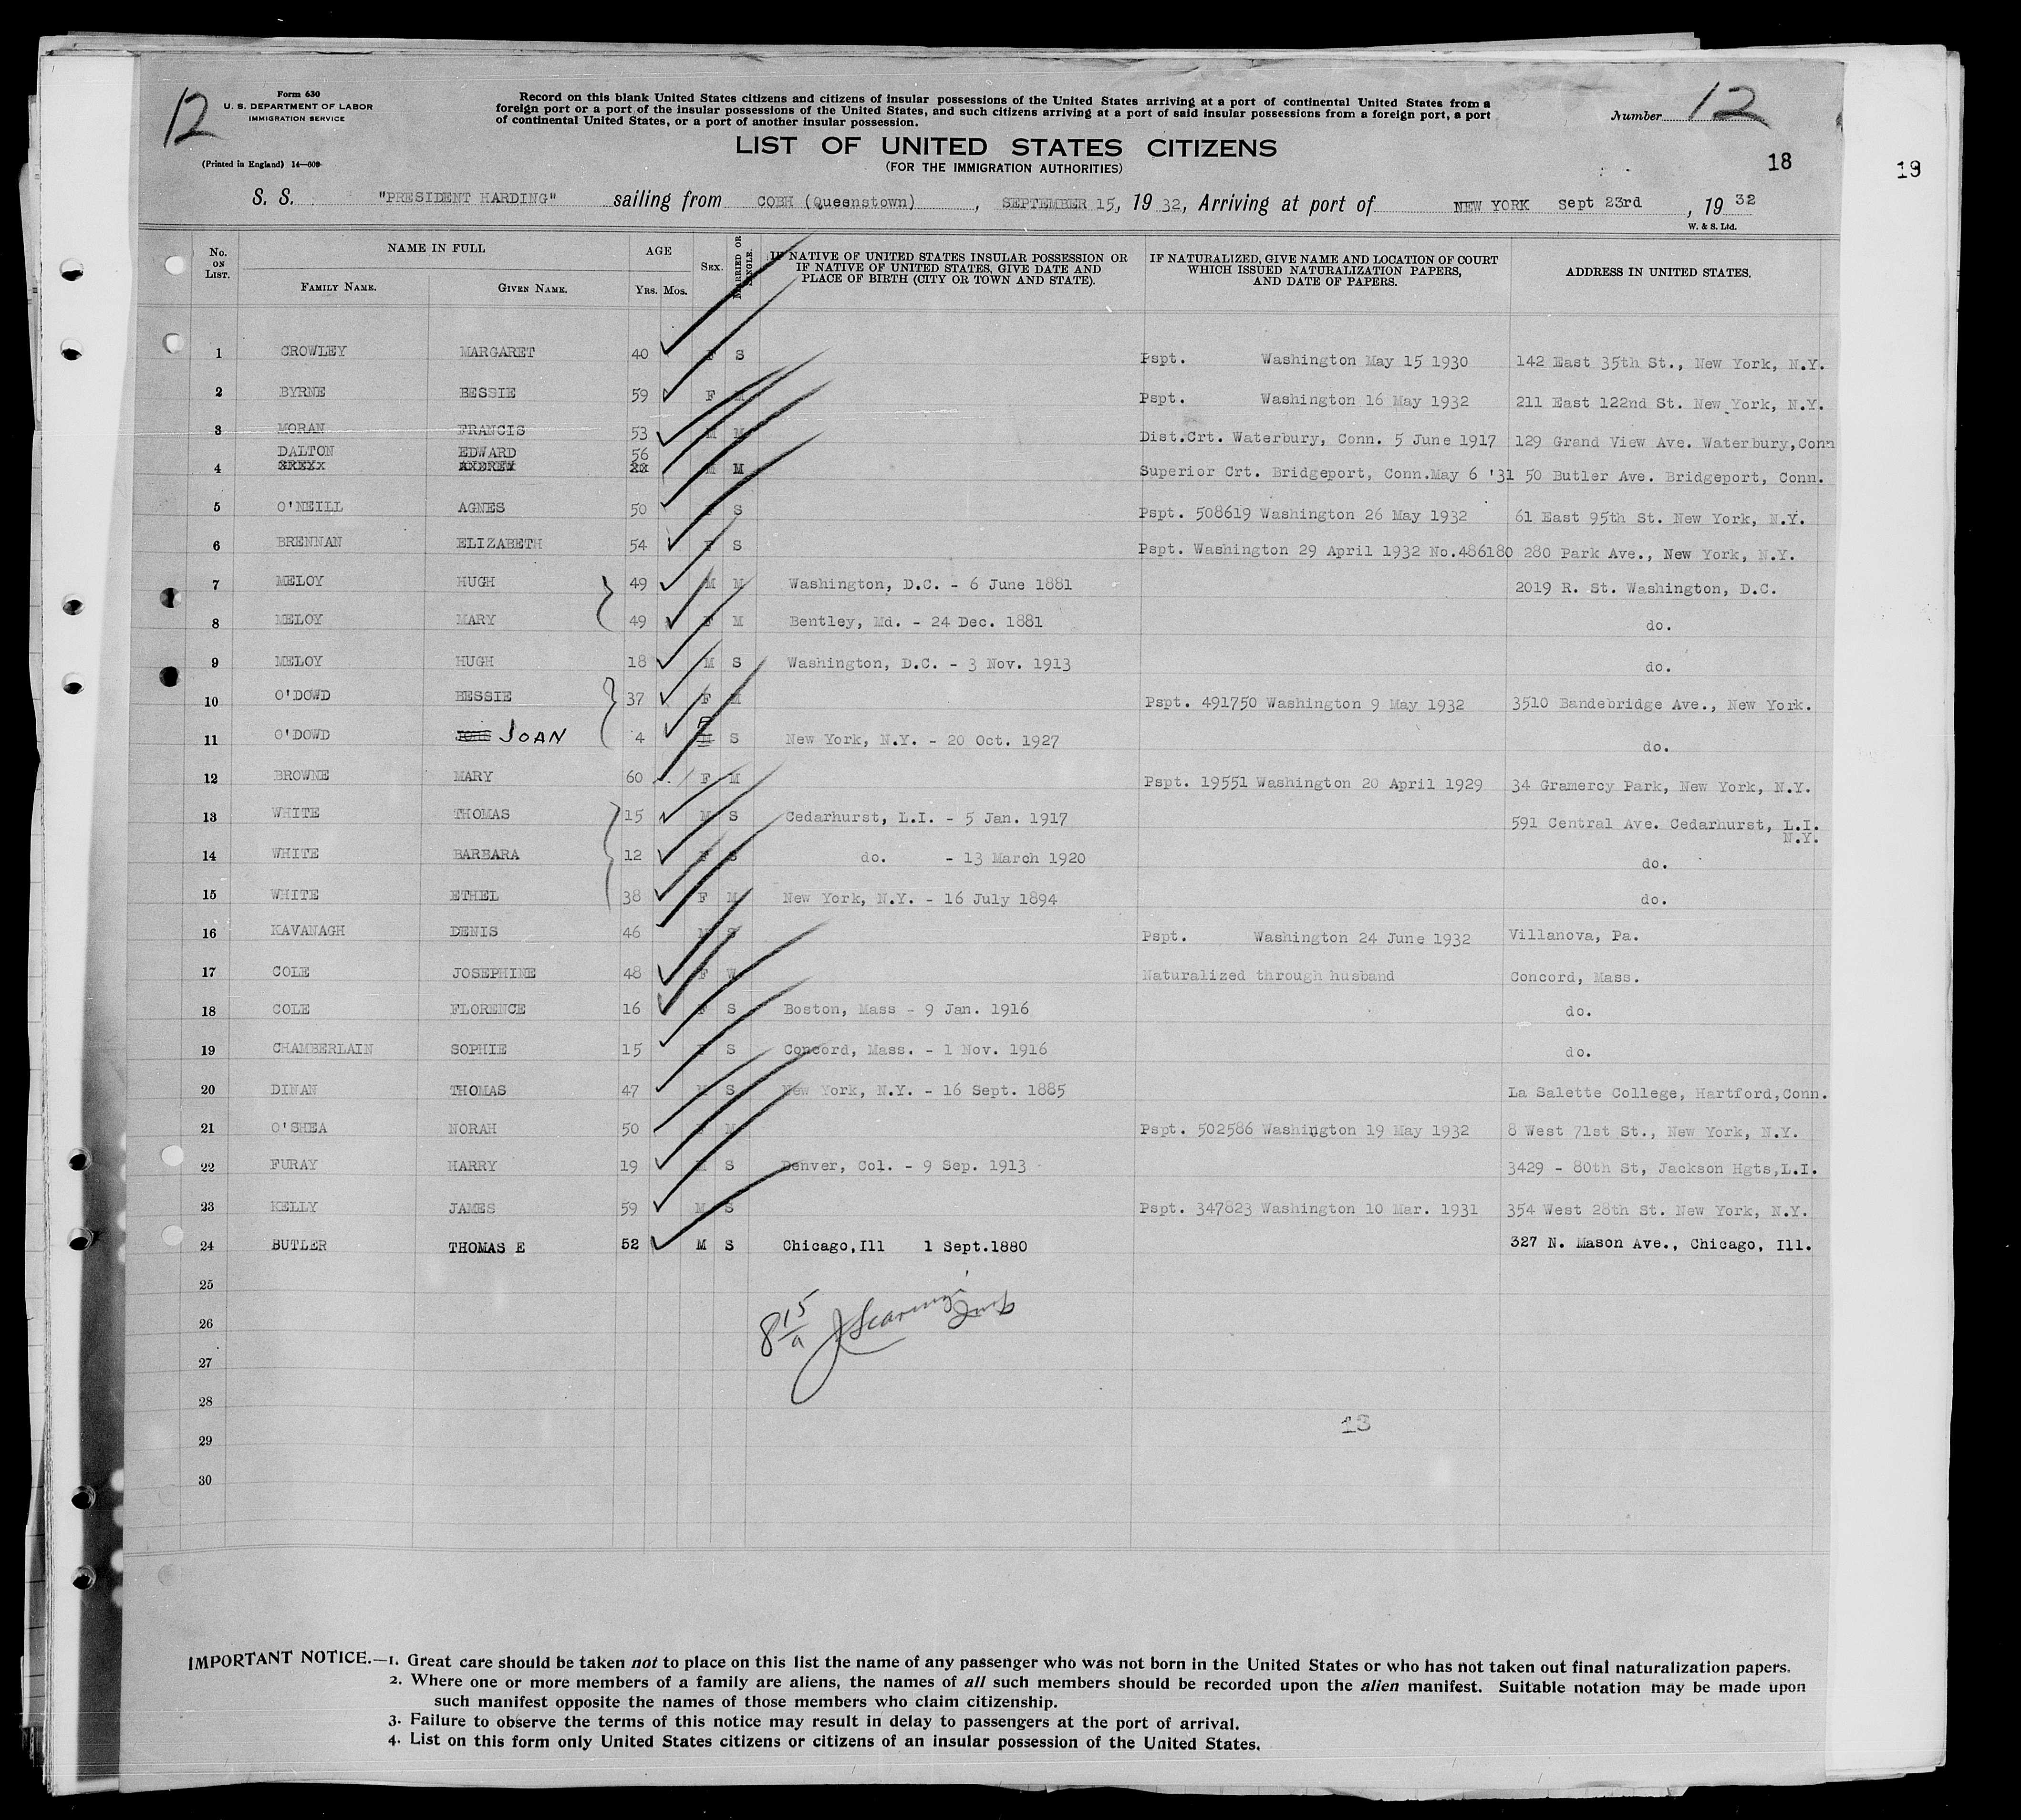 12
Form 630
U. S. DEPARTMENT OF LABOR
IMMIGRATION SERVICE
(Printed in England) 14—608
Record on this blank United States citizens and citizens of insular possessions of the United States arriving at a port of continental United States from a
foreign port or a port of the insular possessions of the United States, and such citizens arriving at a port of said insular possessions from a foreign port, a port
of continental United States, or a port of another insular possession.
Number 12
LIST OF UNITED STATES CITIZENS
(FOR THE IMMIGRATION AUTHORITIES)
18
19
S. S. "PRESIDENT HARDING" sailing from COBH (Queenstown), SEPTEMBER 15, 19 32, Arriving at port of NEW YORK sept 23rd, 19 32
W. & S. Ltd.
No. ON LIST. NAME IN FULL FAMILY NAME. GIVEN NAME. AGE YRS. MOS. SEX. MARRIED OR SINGLE. IF NATIVE OF UNITED STATES INSULAR POSSESSION OR IF NATIVE OF UNITED STATES, GIVE DATE AND PLACE OF BIRTH (CITY OR TOWN AND STATE). IF NATURALIZED, GIVE NAME AND LOCATION OF COURT WHICH ISSUED NATURALIZATION PAPERS, AND DATE OF PAPERS. ADDRESS IN UNITED STATES.
1 CROWLEY MARGARET 40 F S Pspt. Washington May 15 1930 142 East 35th St., New York, N.Y.
2 BYRNE BESSIE 59 F M Pspt. Washington 16 May 1932 211 East 122nd St. New York, N.Y.
3 MORAN FRANCIS 53 M M Dist.Crt. Waterbury, Conn. 5 June 1917 129 Grand View Ave. Waterbury,Conn
DALTON EDWARD 56
4 M M Superior Crt. Bridgeport, Conn.May 6 '31 50 Butler Ave. Bridgeport, Conn.
5 O'NEILL AGNES 50 F S Pspt. 508619 Washington 26 May 1932 61 East 95th St. New York, N.Y.
6 BRENNAN ELIZABETH 54 F S Pspt. Washington 29 April 1932 No.486180 280 Park Ave., New York, N.Y.
7 MELOY HUGH 49 M M Washington, D.C. - 6 June 1881 2019 R. St. Washington, D.C.
8 MELOY MARY 49 F M Bentley, Md. - 24 Dec. 1881 do.
9 MELOY HUGH 18 M S Washington, D.C. - 3 Nov. 1913 do.
10 O'DOWD BESSIE 37 F M Pspt. 491750 Washington 9 May 1932 3510 Bandebridge Ave., New York.
11 O'DOWD JOAN 4 F S New York, N.Y. - 20 Oct. 1927 do.
12 BROWNE MARY 60 F M Pspt. 19551 Washington 20 April 1929 34 Gramercy Park, New York, N.Y.
13 WHITE THOMAS 15 M S Cedarhurst, L.I. - 5 Jan. 1917 591 Central Ave. Cedarhurst, L.I.
N.Y.
14 WHITE BARBARA 12 F S do. - 13 March 1920 do.
15 WHITE ETHEL 38 F M New York, N.Y. - 16 July 1894 do.
16 KAVANAGH DENIS 46 M S Pspt. Washington 24 June 1932 Villanova, Pa.
17 COLE JOSEPHINE 48 F W Naturalized through husband Concord, Mass.
18 COLE FLORENCE 16 F S Boston, Mass - 9 Jan. 1916 do.
19 CHAMBERLAIN SOPHIE 15 F S Concord, Mass. - 1 Nov. 1916 do.
20 DINAN THOMAS 47 M S New York, N.Y. - 16 Sept. 1885 La Salette College, Hartford,Conn.
21 O'SHEA NORAH 50 F M Pspt. 502586 Washington 19 May 1932 8 West 71st St., New York, N.Y.
22 FURAY HARRY 19 M S Denver, Col. - 9 Sep. 1913 3429 - 80th St, Jackson Hgts,L.I.
23 KELLY JAMES 59 M S Pspt. 347823 Washington 10 Mar. 1931 354 West 28th St. New York, N.Y.
24 BUTLER THOMAS E 52 M S Chicago,Ill 1 Sept.1880 327 N. Mason Ave., Chicago, Ill.
25
26
27
28
29
30
8 15/a
13
IMPORTANT NOTICE.—1. Great care should be taken not to place on this list the name of any passenger who was not born in the United States or who has not taken out final naturalization papers.
2. Where one or more members of a family are aliens, the names of all such members should be recorded upon the alien manifest. Suitable notation may be made upon
such manifest opposite the names of those members who claim citizenship.
3. Failure to observe the terms of this notice may result in delay to passengers at the port of arrival.
4. List on this form only United States citizens or citizens of an insular possession of the United States.